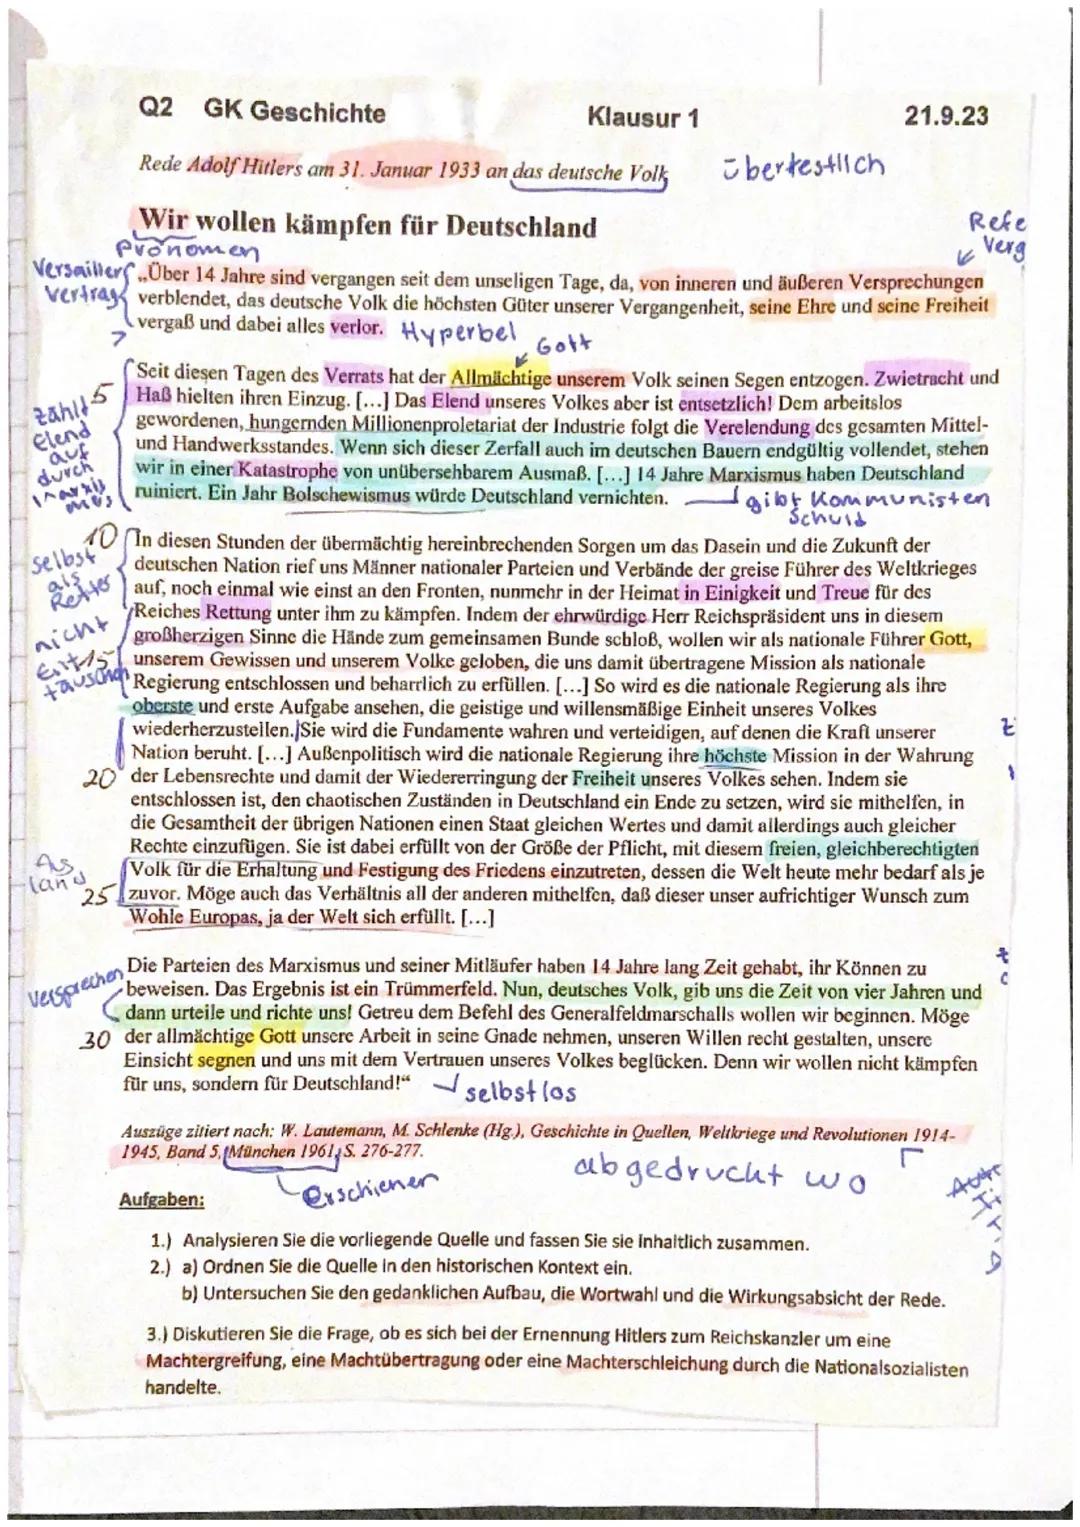 Q2 GK Geschichte Klausur 1 21.9.23
Rede Adolf Hitlers am 31. Januar 1933 an das deutsche Volk übertestlich
Wir wollen kämpfen für Deutschland
Pronomen
Refe
Verg
Versailler
Vertrag
„Über 14 Jahre sind vergangen seit dem unseligen Tage, da, von inneren und äußeren Versprechungen
verblendet, das deutsche Volk die höchsten Güter unserer Vergangenheit, seine Ehre und seine Freiheit
vergaß und dabei alles verlor. Hyperbel
Gott
Seit diesen Tagen des Verrats hat der Allmächtige unserem Volk seinen Segen entzogen. Zwietracht und
5 Haß hielten ihren Einzug. [...] Das Elend unseres Volkes aber ist entsetzlich! Dem arbeitslos
gewordenen, hungernden Millionenproletariat der Industrie folgt die Verelendung des gesamten Mittel-
und Handwerksstandes. Wenn sich dieser Zerfall auch im deutschen Bauern endgültig vollendet, stehen
wir in einer Katastrophe von unübersehbarem Ausmaß. [...] 14 Jahre Marxismus haben Deutschland
ruiniert. Ein Jahr Bolschewismus würde Deutschland vernichten.
zählt
Elend
auf
durch
Marxis
mus
gibt Kommunisten
Schuld
10 In diesen Stunden der übermächtig hereinbrechenden Sorgen um das Dasein und die Zukunft der
deutschen Nation rief uns Männer nationaler Parteien und Verbände der greise Führer des Weltkrieges
auf, noch einmal wie einst an den Fronten, nunmehr in der Heimat in Einigkeit und Treue für des
Reiches Rettung unter ihm zu kämpfen. Indem der ehrwürdige Herr Reichspräsident uns in diesem
großherzigen Sinne die Hände zum gemeinsamen Bunde schloß, wollen wir als nationale Führer Gott,
15 unserem Gewissen und unserem Volke geloben, die uns damit übertragene Mission als nationale
Regierung entschlossen und beharrlich zu erfüllen. [...] So wird es die nationale Regierung als ihre
oberste und erste Aufgabe ansehen, die geistige und willensmäßige Einheit unseres Volkes
wiederherzustellen. Sie wird die Fundamente wahren und verteidigen, auf denen die Kraft unserer
Nation beruht. [...] Außenpolitisch wird die nationale Regierung ihre höchste Mission in der Wahrung
20 der Lebensrechte und damit der Wiedererringung der Freiheit unseres Volkes sehen. Indem sie
entschlossen ist, den chaotischen Zuständen in Deutschland ein Ende zu setzen, wird sie mithelfen, in
die Gesamtheit der übrigen Nationen einen Staat gleichen Wertes und damit allerdings auch gleicher
Rechte einzufügen. Sie ist dabei erfüllt von der Größe der Pflicht, mit diesem freien, gleichberechtigten
Volk für die Erhaltung und Festigung des Friedens einzutreten, dessen die Welt heute mehr bedarf als je
25 zuvor. Möge auch das Verhältnis all der anderen mithelfen, daß dieser unser aufrichtiger Wunsch zum
Wohle Europas, ja der Welt sich erfüllt. [...]
selbst
als
Retter
nicht
land
Die Parteien des Marxismus und seiner Mitläufer haben 14 Jahre lang Zeit gehabt, ihr Können zu
beweisen. Das Ergebnis ist ein Trümmerfeld. Nun, deutsches Volk, gib uns die Zeit von vier Jahren und
dann urteile und richte uns! Getreu dem Befehl des Generalfeldmarschalls wollen wir beginnen. Möge
30 der allmächtige Gott unsere Arbeit in seine Gnade nehmen, unseren Willen recht gestalten, unsere
Einsicht segnen und uns mit dem Vertrauen unseres Volkes beglücken. Denn wir wollen nicht kämpfen
für uns, sondern für Deutschland!“
versprechen
selbstlos
Auszüge zitiert nach: W. Lautemann, M. Schlenke (Hg.), Geschichte in Quellen, Weltkriege und Revolutionen 1914-
1945, Band 5, München 1961, S. 276-277.
abgedruckt wo
erschienen
Aufgaben:
1.) Analysieren Sie die vorliegende Quelle und fassen Sie sie inhaltlich zusammen.
2.) a) Ordnen Sie die Quelle in den historischen Kontext ein.
b) Untersuchen Sie den gedanklichen Aufbau, die Wortwahl und die Wirkungsabsicht der Rede.
3.) Diskutieren Sie die Frage, ob es sich bei der Ernennung Hitlers zum Reichskanzler um eine
Machtergreifung, eine Machtübertragung oder eine Machterschleichung durch die Nationalsozialisten
handelte.